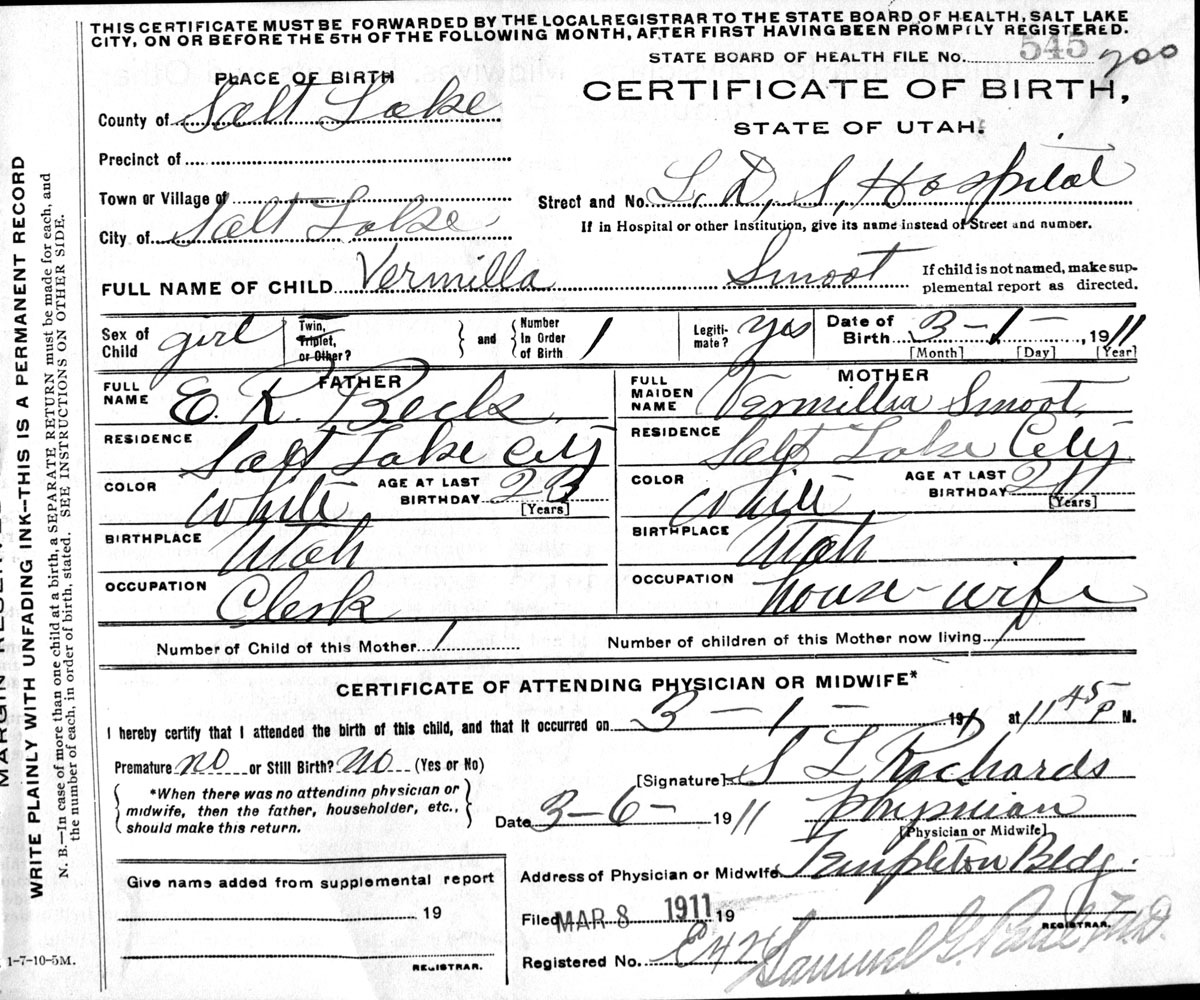 THIS CERTIFICATE MUST BE FORWARDED BY THE LOCAL REGISTRAR TO THE STATE BOARD OF HEALTH, SALT LAKE
CITY, ON OR BEFORE THE 5TH OF THE FOLLOWING MONTH, AFTER FIRST HAVING BEEN PROMPTLY REGISTERED.
STATE BOARD OF HEALTH FILE No. 545 700
PLACE OF BIRTH
CERTIFICATE OF BIRTH,
County of Salt Lake
STATE OF UTAH.
Precinct of
Town or Village of
Street and No. L. D. S. Hospital
City of Salt Lake
If in Hospital or other Institution, give its name instead of Street and number.
FULL NAME OF CHILD Vermilla Smoot
If child is not named, make sup-
plemental report as directed.
Sex of Child girl Twin, Triplet, or Other? and Number In Order of Birth 1 Legiti-mate? yes Date of Birth 3-1-, 1911
[Month] [Day] [Year]
FATHER
FULL NAME E. R. Beck
RESIDENCE Salt Lake City
COLOR White AGE AT LAST BIRTHDAY 23
[Years]
BIRTHPLACE Utah
OCCUPATION Clerk
MOTHER
FULL MAIDEN NAME Vermillia Smoot
RESIDENCE Salt Lake City
COLOR White AGE AT LAST BIRTHDAY 21
[Years]
BIRTHPLACE Utah
OCCUPATION house-wife
Number of Child of this Mother 1 Number of children of this Mother now living 1
CERTIFICATE OF ATTENDING PHYSICIAN OR MIDWIFE*
I hereby certify that I attended the birth of this child, and that it occurred on 3-1- 191 at 11 45 P M.
Premature no or Still Birth? no (Yes or No)
[Signature] S L Richards
*When there was no attending physician or
midwife, then the father, householder, etc.,
should make this return.
Date 3-6- 1911 Physician
[Physician or Midwife]
Address of Physician or Midwife Templeton Bldg.
Give name added from supplemental report
19
REGISTRAR.
Filed MAR 8 1911 19
REGISTRAR.
Registered No. E42 Samuel G. Paul M.D.
1-7-10-5M.
WRITE PLAINLY WITH UNFADING INK--THIS IS A PERMANENT RECORD
N. B.—In case of more than one child at a birth, a SEPARATE RETURN must be made for each, and
the number of each, in order of birth, stated. SEE INSTRUCTIONS ON OTHER SIDE.